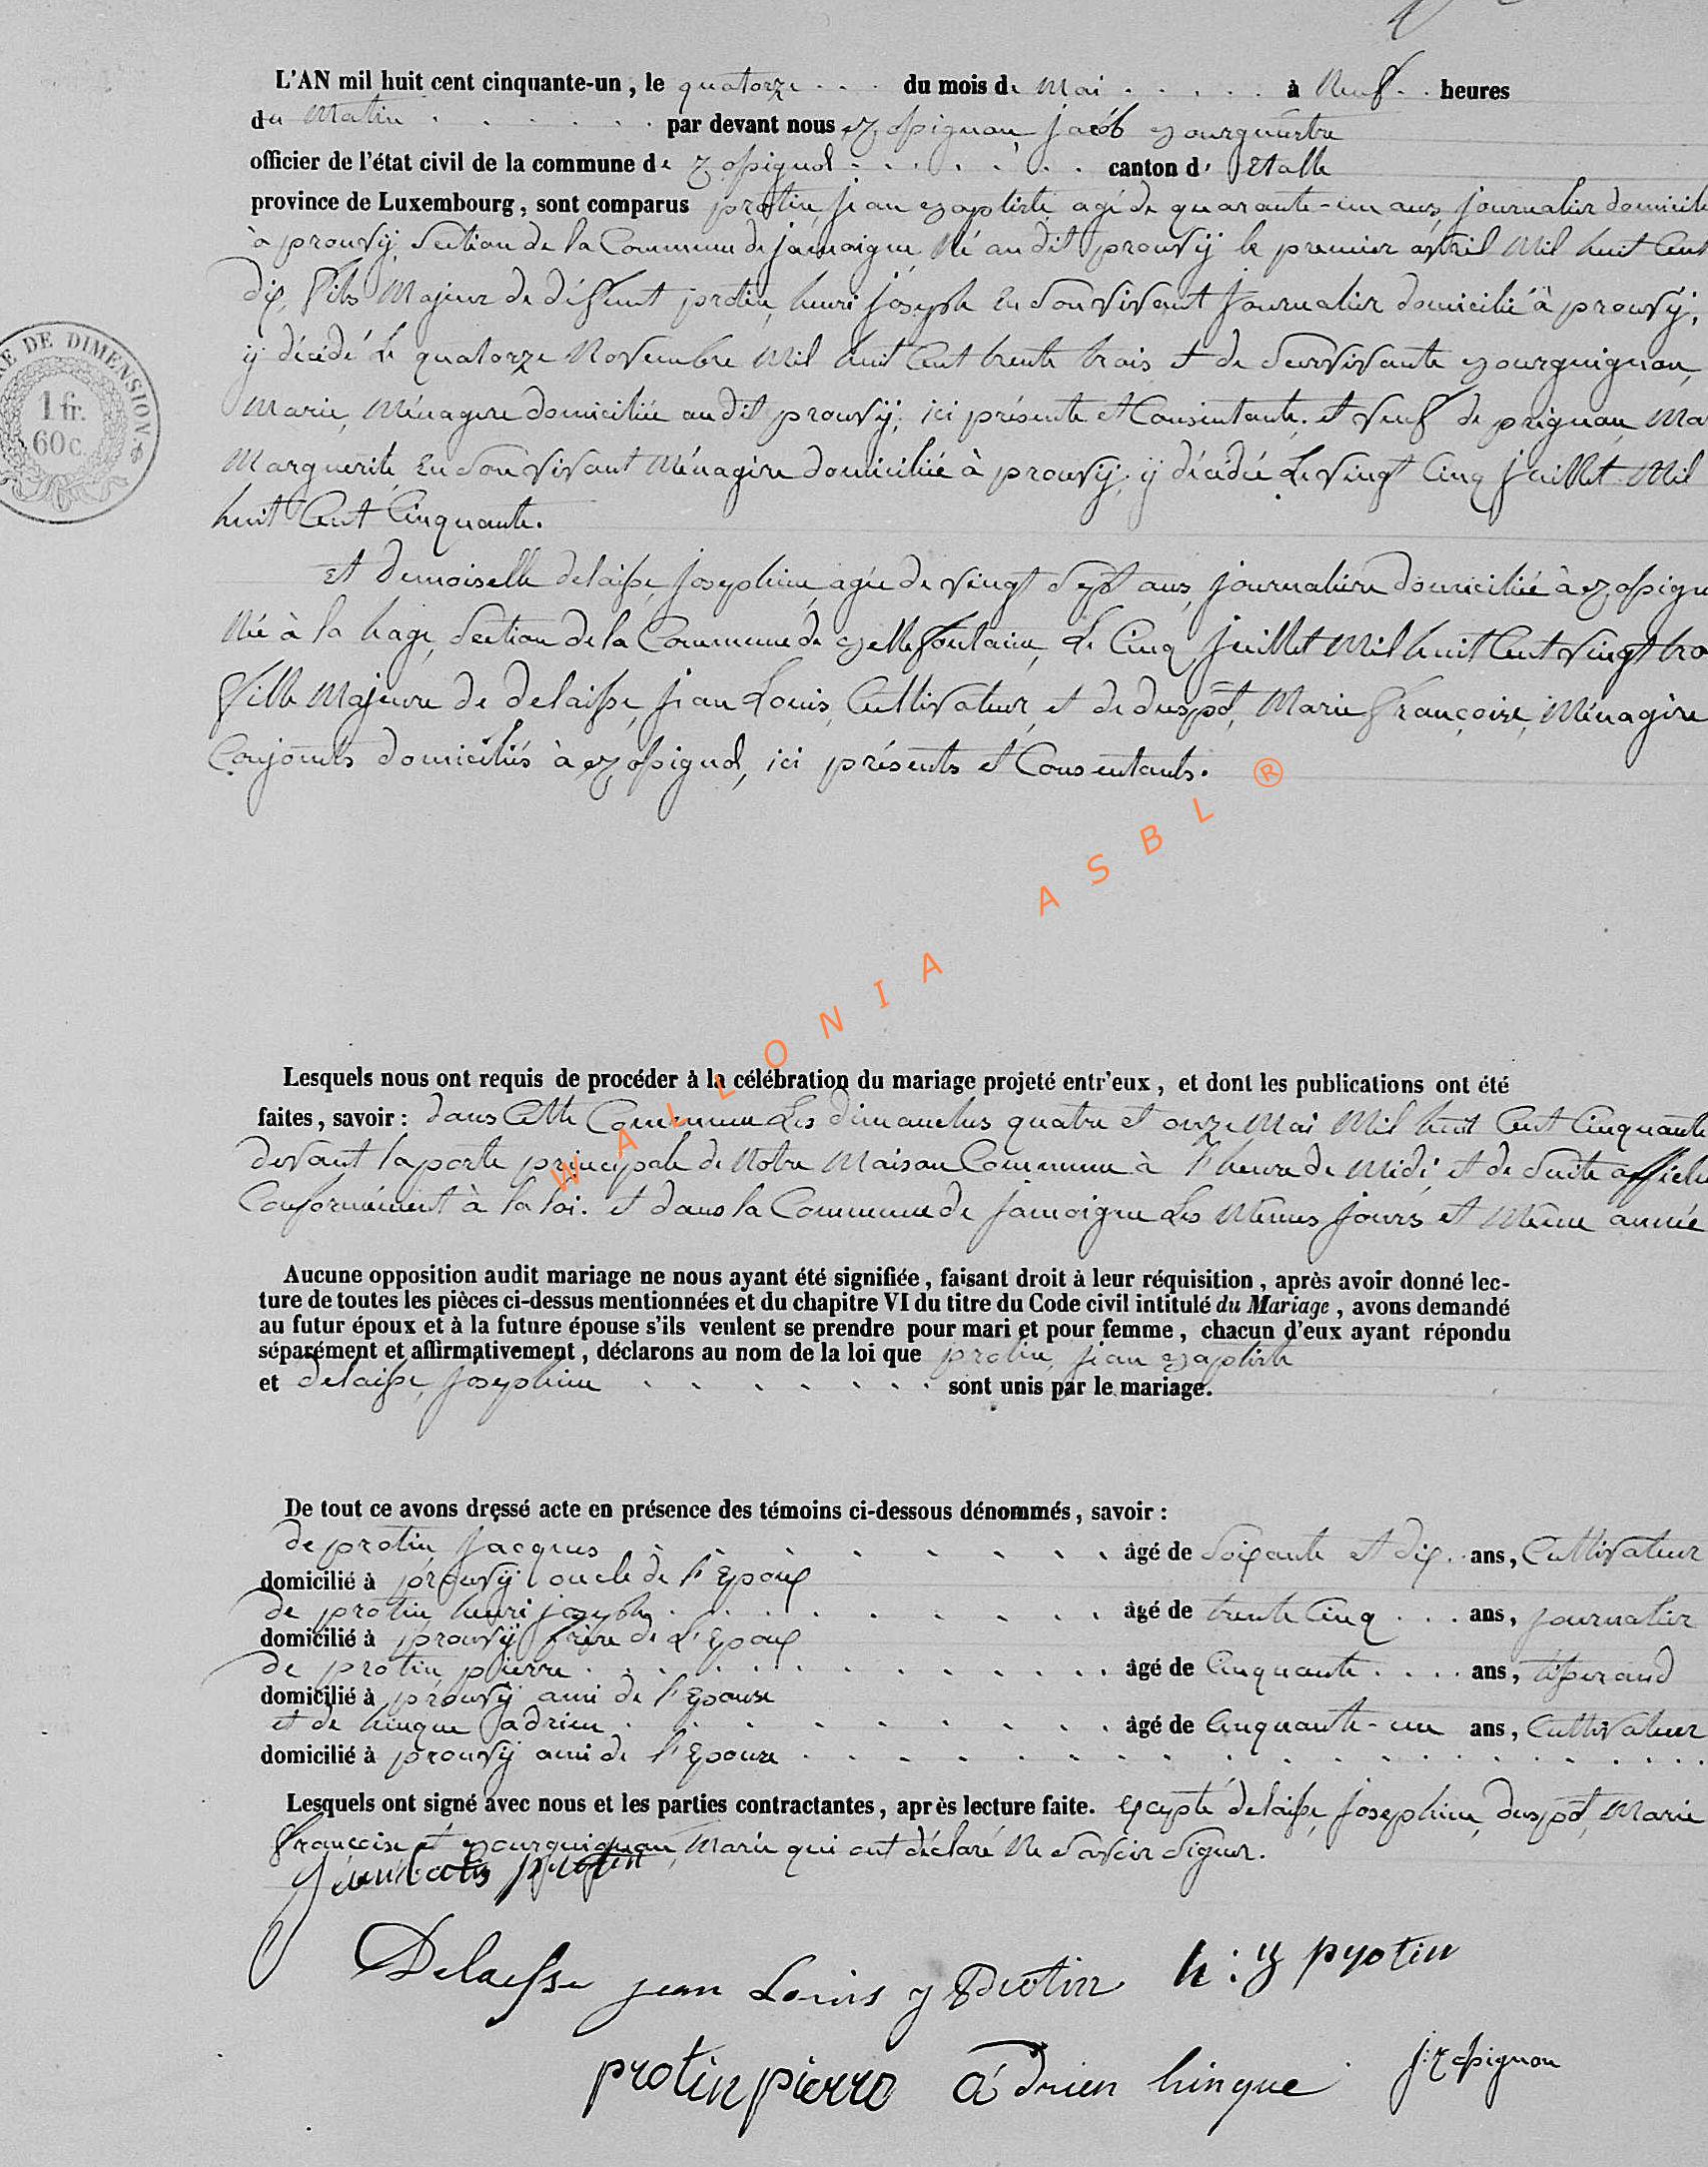 L'AN mil huit cent cinquante-un, le quatorze . . . du mois de Mai . . . . . à Neuf . . heures
du Matin . . . . . . . par devant nous rossignon jacob Bourguestre
officier de l'état civil de la commune de rossignol . . . . . . canton d' Etalle
province de Luxembourg, sont comparus protin, jean Baptiste, agé de quarante-un ans, journalier domicilié
à prouvÿ, Section de la Commune de jamoigne, Né au dit prouvÿ le premier avril Mil huit Cent
dix, fils Majeur de défunt protin, henri joseph En Son vivant journalier domicilié à prouvÿ,
ÿ décédé Le quatorze Novembre Mil huit Cent trente trois et de Survivante Bourguignon,
Marie, Ménagere domiciliée au dit prouvÿ, ici présente et Consentante. et veuf de prignon,
Marguerite En Son vivant Ménagère domiciliée à prouvÿ, ÿ décédée Le vingt Cinq juillet Mil
huit Cent Cinquante.
Et Demoiselle delaisse, josephine, agée de vingt Sept ans, journalière domiciliée à
Née à la hage, Section de la Commune de Bellefontaine, Le Cinq juillet Mil huit Cent vingt
fille Majeure de delaisse, jean Louis, Cultivateur, et de Marie françoise, Ménagère
Conjoints domiciliés à rossignol, ici présents et Consentants.
WALLONIA ASBL ®
Lesquels nous ont requis de procéder à la célébration du mariage projeté entr'eux, et dont les publications ont été
faites, savoir : dans Cette Commune Les dimanches quatre et onze Mai Mil huit Cent Cinquante
devant la porte principale de Notre Maison Commune à l'heure de Midi, et de Suite
Conformément à la loi. et dans la Commune de jamoigne Les Mêmes jours et Même année
Aucune opposition audit mariage ne nous ayant été signifiée, faisant droit à leur réquisition, après avoir donné lec-
ture de toutes les pièces ci-dessus mentionnées et du chapitre VI du titre du Code civil intitulé du Mariage, avons demandé
au futur époux et à la future épouse s'ils veulent se prendre pour mari et pour femme, chacun d'eux ayant répondu
séparément et affirmativement, déclarons au nom de la loi que protin, jean Baptiste
et delaisse, josephine . . . . . . . . sont unis par le mariage.
De tout ce avons dressé acte en présence des témoins ci-dessous dénommés, savoir :
de protin jacques . . . . . . . . âgé de Soixante et dix . . ans, Cultivateur
domicilié à prouvÿ oncle de l'Epoux
de protin henri joseph . . . . . . . . âgé de trente Cinq . . . ans, journalier
domicilié à prouvÿ frère de L'Epoux
de protin pierre . . . . . . . . . . âgé de Cinquante . . . . ans, tisserand
domicilié à prouvÿ ami de l'Epouse
et de hinque adrien . . . . . . . . âgé de Cinquante-un ans, Cultivateur
domicilié à prouvÿ ami de l'Epouse . . . . . . . . . . . . . . .
Lesquels ont signé avec nous et les parties contractantes, après lecture faite. Excepté delaisse, josephine, Marie
françoise et Bourguignon, Marie qui ont déclaré Ne Savoir Signer.
protin
Delaisse jean Louis J protin h : J protin
protin pierre adrien hinque J: rossignon
RE DE DIMENSION.
1 fr.
60c.